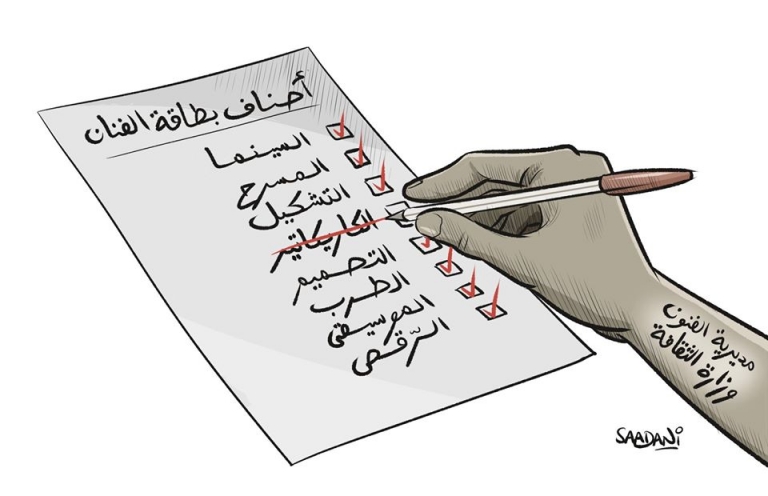 أصناف بطاقة الفنان
السينما
المسرح
التشكيل
الكاريكاتير
التصميم
الطرب
الموسيقى
الرّقص
مديرية الفنون
وزارة الثقافة
SAADANi